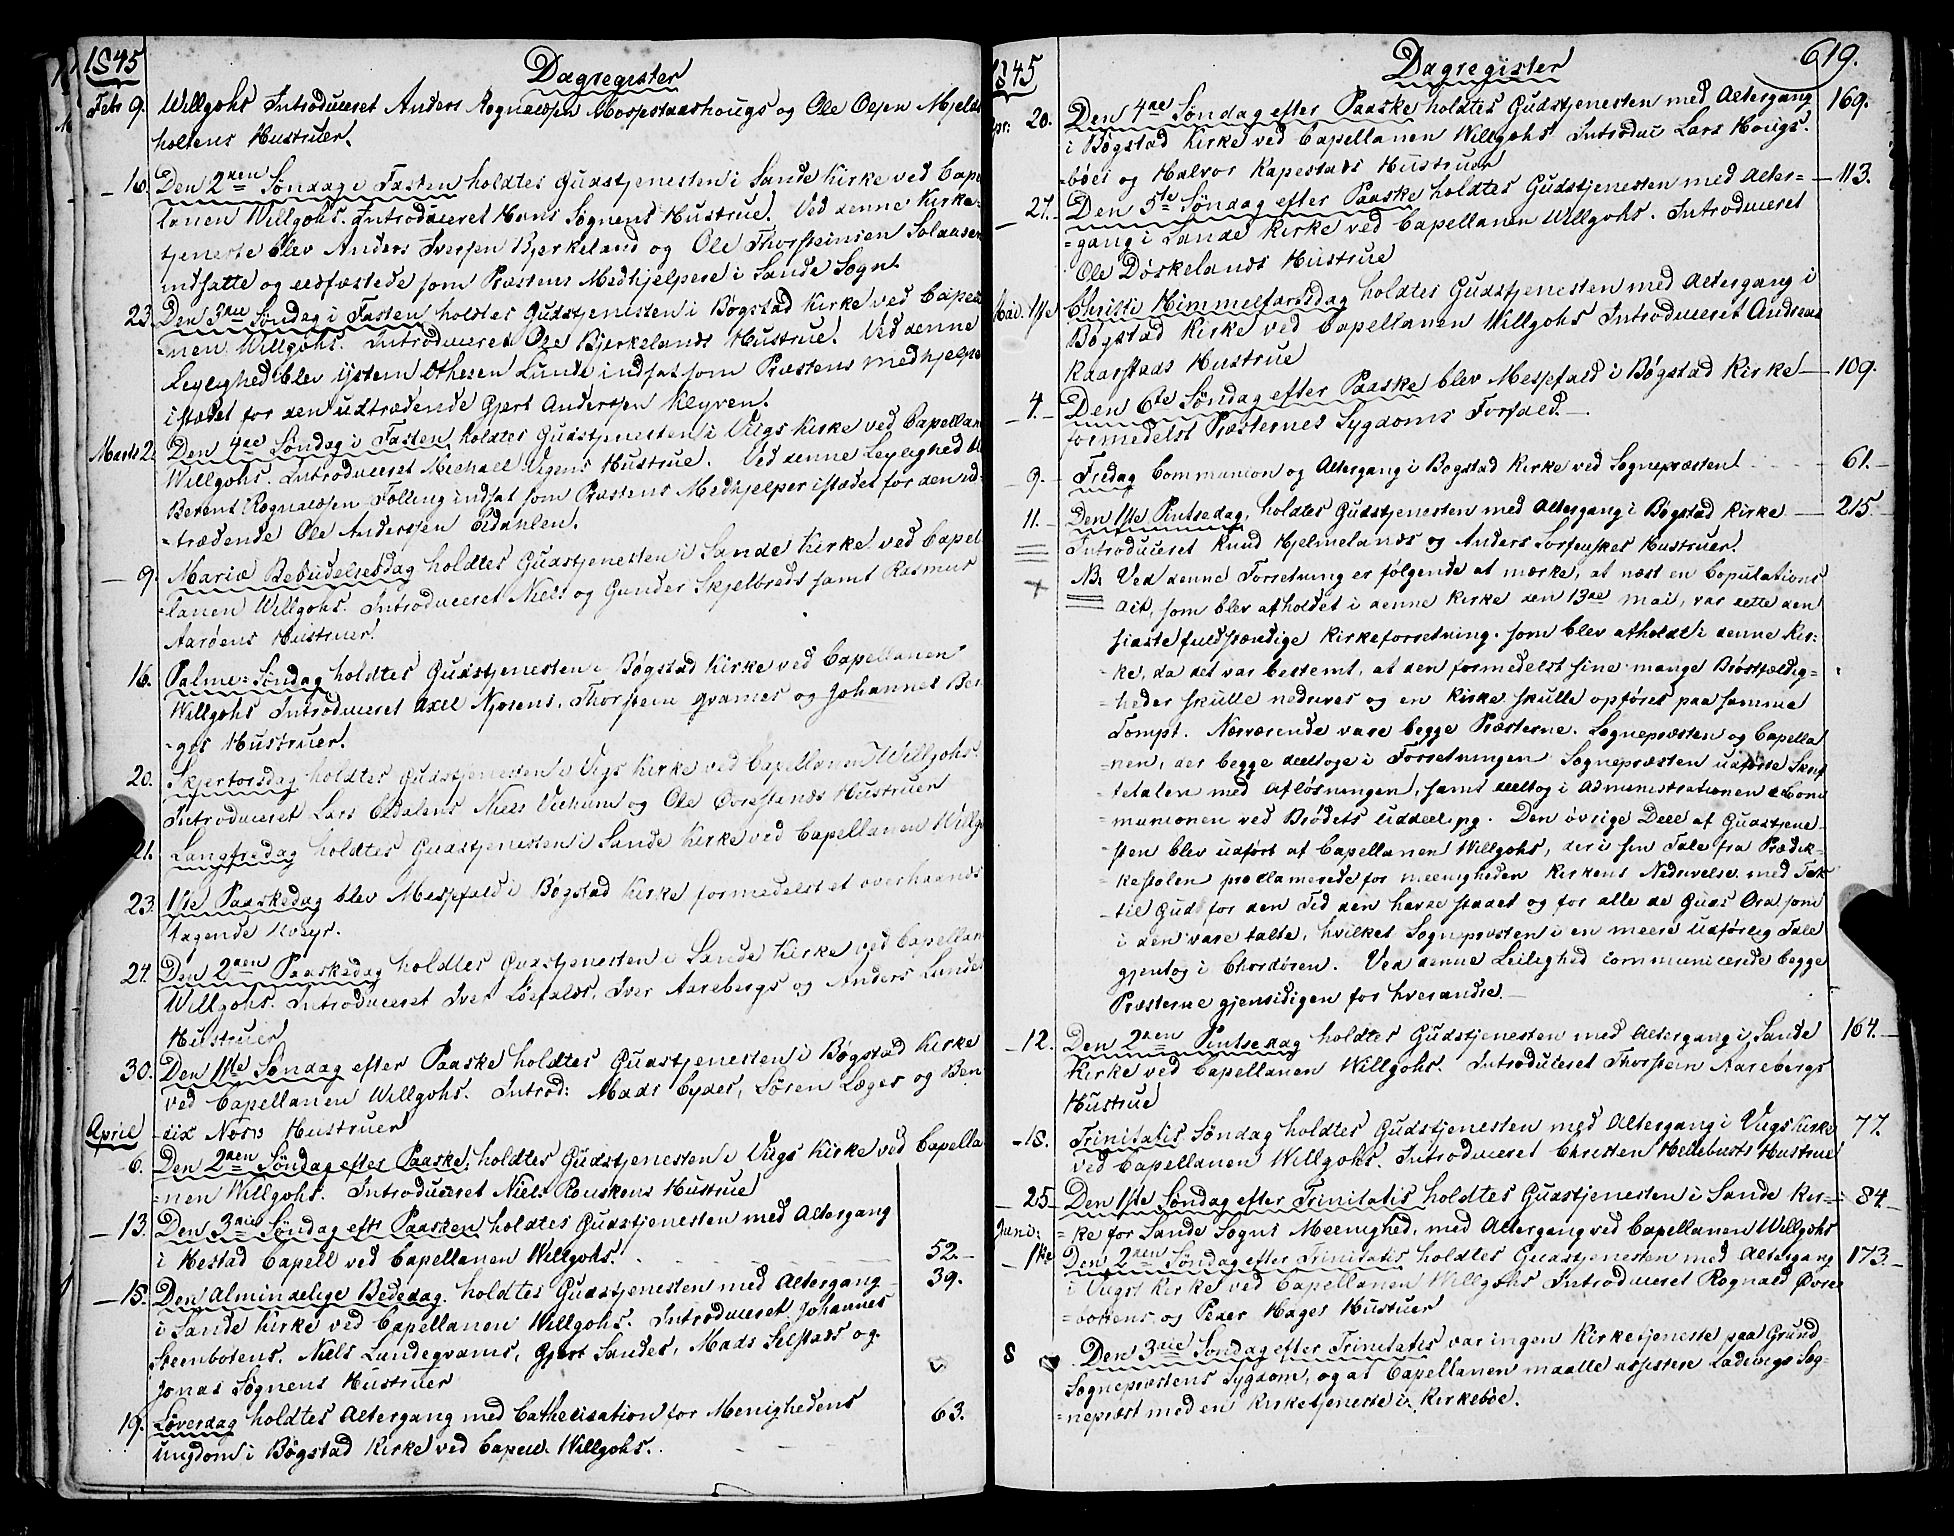 1845
Dagregister
Febr 9. Willgohs Introduceret Anders Rognaldsen Mospestaashougs og Ole Olsen Mjelds
holtens Hustruer.
16. Den 2den Søndag i Fasten holdtes Gudstjenesten i Sande Kirke ved Cape
lanen Willgohs. Introduceret Hans Sognens Hustrue. Ved denne Kirke-
tjeneste blev Anders Iversen Bjerkeland og Ole Thorsteinsen Solaasen
indsatte og eedfæstede som Præstens Medhjelpere i Sande Sogn.
23. Den 3die Søndag i Fasten holdtes Gudstjenesten i Bøgstad Kirke ved Capel
-nen Willgohs. Introduceret Ole Bjerkelands Hustrue. Ved denne
Leylighed blev Thesen Lunde indsat som Præstens Medhjelper
istædet for den udtrædende Gjert Anderssen Kleyven.
Marts 2. Den 4de Søndag i Fasten holdtes Gudstjenesten i Viigs Kirke ved Capellan
Willgohs. Introduceret Michael Vigens Hustrue. Ved denne Leylighed bl
Berent Rognaldsen Følling indsat som Præstens Medhjelper istædet for den ud-
-trædende Ole Anderssen Eldahlen.
9. Mariæ Bebudelsesdag holdtes Gudstjenesten i Sande Kirke ved Capel
-lanen Willgohs. Introduceret Niels og Gunder Skjelbreds samt Rasmus
Aarøens Hustruer.
16. Palme-Søndag holdtes Gudstjenesten i Bøgstad Kirke ved Capellanen
Willgohs Introduceret Axel Njøsens, Thorstein Hvames og Johannes Ber
-ges Hustruer.
20. Skjertorsdag holdtes Gudstjenesten i Vigs Kirke ved Capellanen Willgohs.
Introduceret Lars Eldalens Niels Viehum og Ole Hustruer
21. Langfredag holdtes Gudstjenesten i Sande Kirke ved Capellanen Willgo
23. 1ste Paaskedag blev Messefald i Bøgstad Kirke formedelst et overhaands
tagende Uveyr.
24. Den 2den Paaskedag holdtes Gudstjenesten i Sande Kirke ved Capellan
Willgohs. Introduceret Iver Løefalds, Iver Aarebergs og Anders Lundes
Hustruer
30. Den 1ste Søndag efter Paaske holdtes Gudstjenesten i Bøgstad Kirke
ved Capellanen Willgohs. Introd: Mads Eydes, Søren Læges og Ben
April -dix Hustruer
6. Den 2den Søndag efter Paaske, holdtes Gudstjenesten i Viigs Kirke ved Capella
-nen Willgohs. Introduceret Niels Rouskens Hustrue
13. Den 3die Søndag eftr Paasken holdtes Gudstjenesten med Altergang
i Hestad Capell ved Capellanen Willgohs. 52.-
15. Den Almindelige Bededag holdtes Gudstjenesten med Altergang 39.
i Sande Kirke ved Capellanen Willgohs. Introduceret Johannes
Steenbotens, Niels Lundegvams, Gjert Sandes, Mads Selstads og
Jonas Sognens Hustruer
19. Løverdag holdtes Altergang med Cathecisation for Menighedens 63.
ungdom i Bøgstad Kirke ved Capell. Willgohs.
1845
Dagregister
619.
pr: 20. Den 4de Søndag efter Paaske holdtes Gudstjenesten med Altergang 169.
i Bøgstad Kirke ved Capellanen Willgohs. Introduc Lars Hougs.
-bøes og Halvor Kapestads Hustruer
27. Den 5te Søndag efter Paaske holdtes Gudstjenesten med Alter- 113.
-gang i Sande Kirke ved Capellanen Willgohs. Introduceret
Ole Døskelands Hustrue
Mai. 1ste Christi Himmelfartsdag holdtes Gudstjenesten med Altergang i
Bøgstad Kirke ved Capellanen Willgohs Introduceret Andreas
Kaarstads Hustrue
4.- Den 6te Søndag efter Paaske blev Messefald i Bøgstad Kirke 109.
formedelst Præsternes Sygdoms Forfald.-
9.- Fredag Communion og Altergang i Bøgstad Kirke ved Sognepræsten 61.-
11. Den 1ste Pintsedag, holdtes Gudstjenesten med Altergang i Bøgstad Kirke 215.
Introduceret Knud Hjelmelands og Anders Hustruer.
NB. Ved denne Forretning er følgende at mærke, at næst en Copulations
Act, som blev afholdet i denne Kirke den 13de Mai, var dette den
sidste fuldstændige Kirkeforretning som blev afholdt i denne Kir-
-ke, da det var bestemt, at den formedelst sine mange Brøstfældig-
-heder skulle nedrives og en Kirke skulle opføres paa samme
Tompt. Nærværende vare begge Præsterne, Sognepræsten og Capella
-nen, der begge deeltoge i Forretningen Sognepræsten udførte Skrif
-tetalen med Afløsningen, samt deeltog i Administrationen af Com
-munionen ved Brødets Uddeeling. Den øvrige Deel af Gudstjene-
sten blev udført af Capellanen Willgohs, der i sin Tale fra Prædik-
-kestolen proclamerede for meenigheden Kirkens Nedrivelse med Tak
-til Gud for den Tid den havde staaet og for alle de Guds Ord som
i den vare talte, hvilket Sognepræsten i en meere udførlig Tale
gjentog i Chordøren. Ved denne Leilighed communicerede begge
Præsterne gjensidigen for hverandre.-
12. Den 2den Pintsedag holdtes Gudstjenesten med Altergang i Sande 164.-
Kirke ved Capellanen Willgohs. Introduceret Thorstein Aarebergs
Hustrue
-18. Trinitatis Søndag holdtes Gudstjenesten med Altergang i Viigs Kirke 77.
ved Capellanen Willgohs. Introduceret Christen Hellebusts Hustrue
25- Den 1ste Søndag efter Trinitatis holdtes Gudstjenesten i Sande Kir- 84.-
Juni: -ke for Sande Sogns Meenighed, med Altergang ved Capellanen Willgohs
1ste Den 2den Søndag efter Trinitatis holdtes Gudstjenesten med Altergang 173.-
i Viigs Kirke ved Capellanen Willgohs Introduceret Rognald Øvre
-bottens og Peder Hages Hustruer
8 Den 3die Søndag efter Trinitatis var ingen Kirketjeneste paa Grund
Sognepræstens Sygdom, og at Capellanen maatte assistere Ladevigs Sog-
-nepræst med en Kirketjeneste i Kirkebøe.